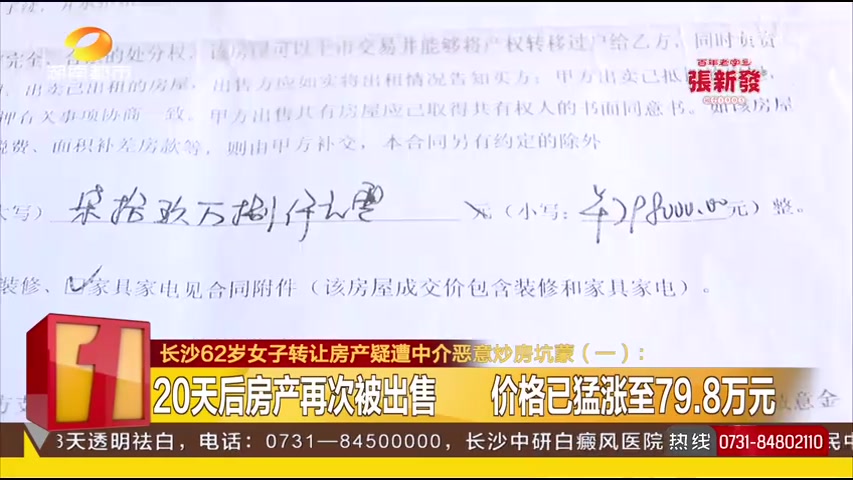 完全、合法的处分权，该房屋可以上市交易并能够将产权转移过户给乙方，同时负责
湖南都市
百年老字号
張新發
出卖已出租的房屋，出售方应如实将出租情况告知买方；甲方出卖已抵
押有关事项协商一致。甲方出售共有房屋应已取得共有权人的书面同意书。如该房屋
税费、面积补差房款等，则由甲方补交，本合同另有约定的除外
大写）柒拾玖万捌仟元整 元（小写：￥798000.00元）整。
装修、☑家具家电见合同附件（该房屋成交价包含装修和家具家电）。
1
长沙62岁女子转让房产疑遭中介恶意炒房坑蒙（一）：
20天后房产再次被出售 价格已猛涨至79.8万元
意金
3天透明祛白，电话：0731—84500000，长沙中研白癜风医院 热线 0731-84802110 民中